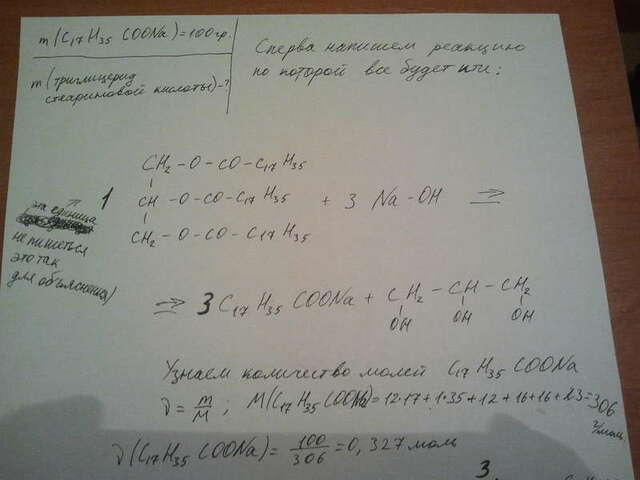 m(C17H35 COONa)=100гр.
m(триглицерид
стариновой кислоты)-?
Сперва напишем реакцию
по которой все будет идти:
CH2 - O - CO - C17 H35
1 CH - O - CO - C17 H35 + 3 Na - OH ⇒
CH2 - O - CO - C17 H35
эта единица
не пишеться
это так
для объяснения!
⇒ 3 C17 H35 COONa + CH2 - CH - CH2
OH OH OH
Узнаем количество молей C17 H35 COONa
ν = m/M ; M(C17 H35 COONa)=12·17+1·35+12+16+16+23=306
г/моль
ν(C17H35 COONa) = 100/306 = 0,327 моль
3